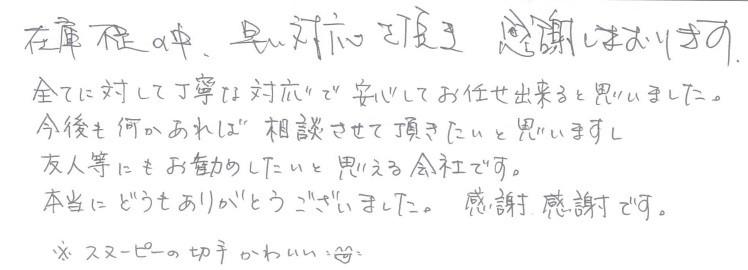 在庫不足の中、早い対応を頂き 感謝しております.
全てに対して丁寧な対応で安心してお任せ出来ると思いました。
今後も何かあれば 相談させて頂きたいと思いますし
友人等にもお勧めしたいと思える会社です。
本当にどうもありがとうございました。 感謝 感謝です。
※スヌーピーの切手かわいい